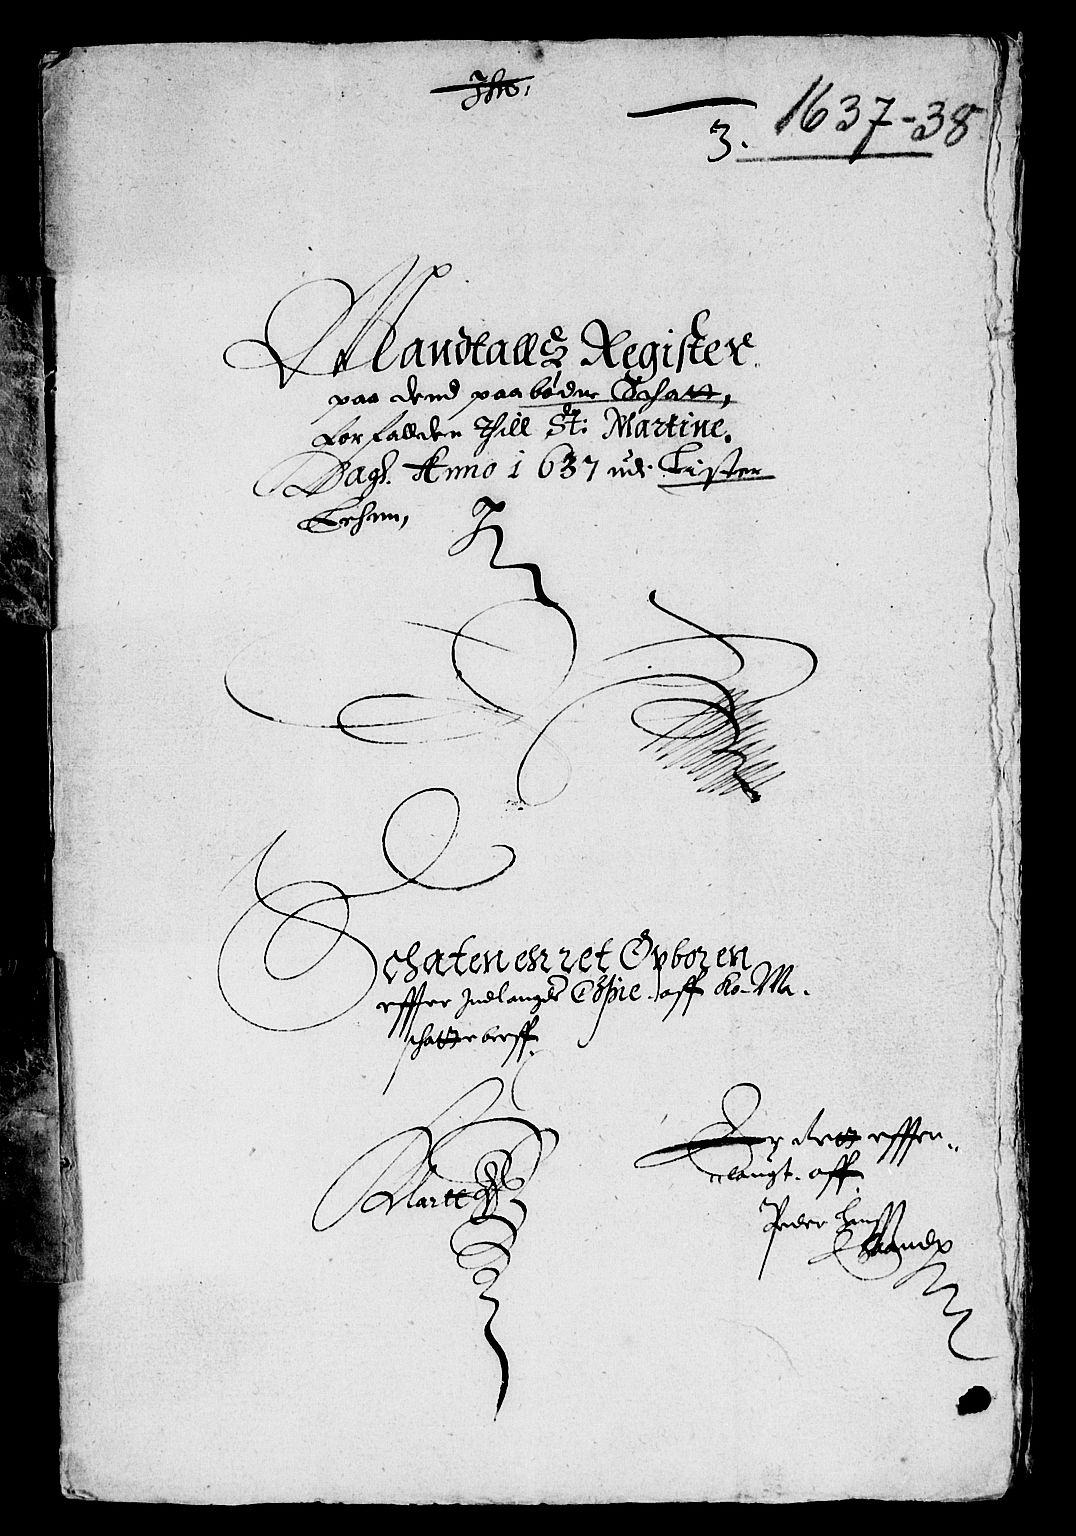 1637-38
3.
Mandtalls Register
paa dend paabødne Schatt,
forfalden Thill St: Martine.
Dags. Anno 1637 udi Lister
Lehnn,
Schaten ehr ret Opboren
effter Indlangde Copie. aff Ko. Ma.
schattebreff.
Klartt
Er dette effter
langt. aff
Peder Hanss